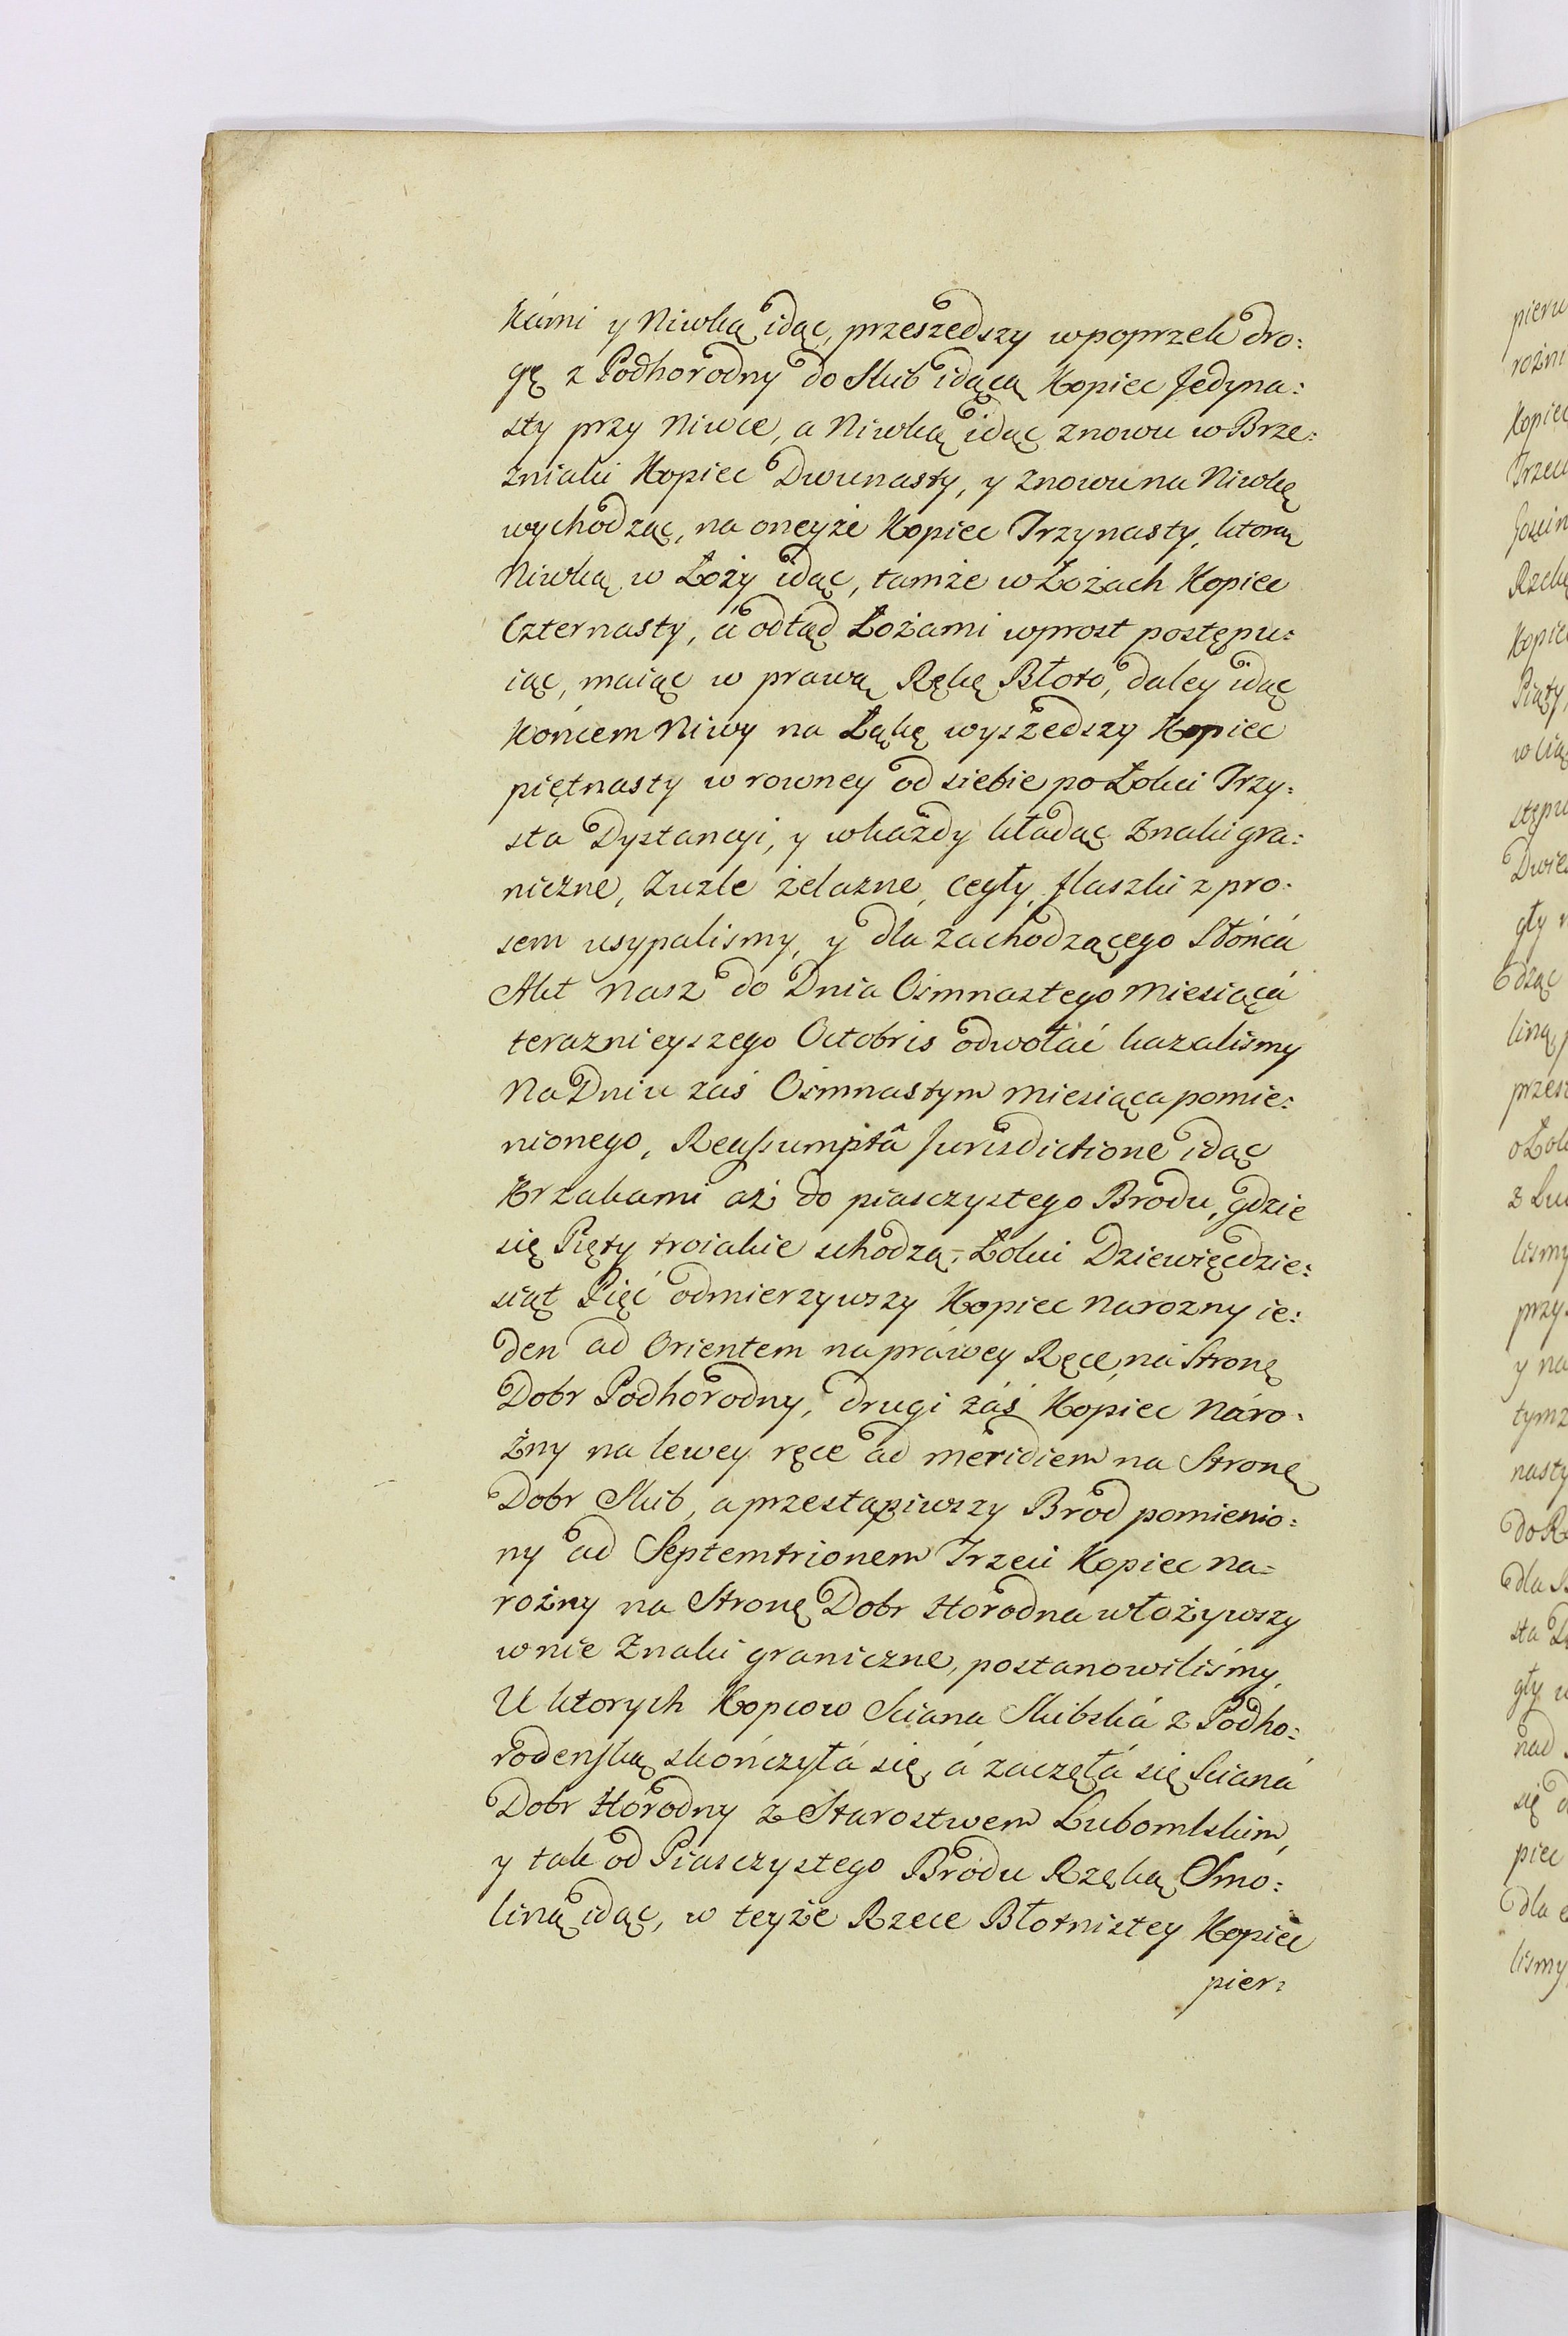 kámi y Niwką idąc, przeszedszy wpoprzek dro:
gę z Podhorodny do Skib idącą Kopiec Jedyna:
sty przy Niwce, a Niwką idąc znowu w Brze:
zniaki Kopiec Dwunasty, y znowu na Niwkę
wychodząc, na oneyże Kopiec Trzynasty, ktorą
Niwką w Łoży idąc, tamże w Łożach Kopiec
Czternasty, á odtąd Łożami wprost postępu:
iąc, maiąc w prawą Rękę Błoto, daley idąc
końcem Niwy na Łąkę wyszedszy Kopiec
piętnasty w rowney od siebie po Łokci Trzy:
sta Dystancyi, y wkażdy kładąc Znaki gra:
niczne, Zuzle żelazne, cegły, flaszki z pro:
sem usypalismy, y dla zachodzącego Słońca
Akt Nasz do Dnia Osmnastego Miesiąca
teraznieyszego Octobris odwołać kazalismy
Na Dniu zaś Osmnastym Miesiąca pomie:
nionego, Reassumptâ Jurisdictione idąc
Krzakami aż do piasczystego Brodu, gdzie
się Pięty troiakie schodzą, Łokci Dziewięćdzie:
siąt Pięć odmierzywszy Kopiec Narozny ie:
den ad Orientem na prawey Ręce, na Stronę
Dobr Podhorodny, drugi záś Kopiec Náro:
żny na lewey ręce ad meridiem na Stronę
Dobr Skib, a przestąpiwszy Brod pomienio:
ny ad Septemtrionem Trzeci Kopiec na=
rożny na Stronę Dobr Horodna włożywszy
w nie Znaki graniczne, postanowiliśmy,
U ktorych Kopcow Sciana Skibská z Podho:
rodenską skończyłá się, á zaczęłá się Scianá
Dobr Horodny z Starostwem Lubomlskim,
y tak od Piasczystego Brodu Rzeką Smo:
liną idąc, w teyże Rzece Błotnistey Kopiec
pier:
pierw
rożni
Kopiec
Trzeci
Rzekę
Kopiec
Piąty,
w cią
stępu
Dwie
gły
dząc
liną,
przesz
z Lu
lismy
przy
y na
tymz
nasty
do R
dla S
sta D
gły
nad
się
piec
dla
lismy